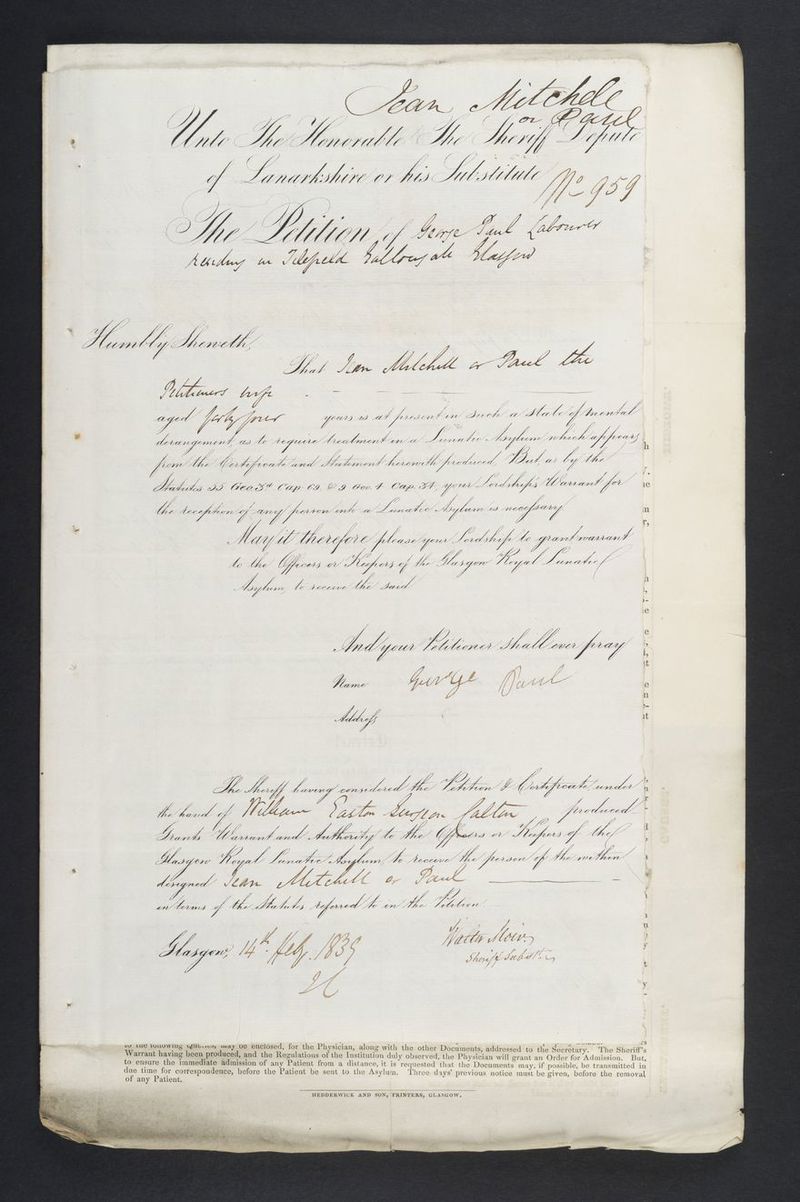 Jean Mitchell
or Paul
Unto The Honorable The Sheriff Depute
of Lanarkshire or his Substitute
No 959
The Petition of George Paul Labourer
residing in Gallowgate Glasgow
Humbly Sheweth,
That Jean Mitchell or Paul the
Petitioners wife
aged forty four years is at present in such a state of mental
derangement, as to require treatment in a Lunatic Asylum which appears
from the Certificate and Statement herewith produced. But, as by the
Statutes 55 Geo. 3d Cap. 69. & 9 Geo. 4 Cap. 34. your Lordship's Warrant for
the reception of any person into a Lunatic Asylum is necessary
May it therefore please your Lordship to grant warrant
to the Officers or Keepers of the Glasgow Royal Lunatic
Asylum, to receive the said
And your Petitioner shall ever pray
Name George Paul
Address
The Sheriff having considered the Petition & Certificate under
the hand of William Easton Surgeon Calton produced
Grants Warrant and Authority to the Officers or Keepers of the
Glasgow Royal Lunatic Asylum, to receive the person of the within
designed Jean Mitchell or Paul
in terms of the Statutes referred to in the Petition
Glasgow, 14th Feby. 1839
Walter Moir
Sheriff Subst.
to the following Queries, may be enclosed, for the Physician, along with the other Documents, addressed to the Secretary. The Sheriff's
Warrant having been produced, and the Regulations of the Institution duly observed, the Physician will grant an Order for Admission. But,
to ensure the immediate admission of any Patient from a distance, it is requested that the Documents may, if possible, be transmitted in
due time for correspondence, before the Patient be sent to the Asylum. Three days' previous notice must be given, before the removal
of any Patient.
HEDDERWICK AND SON, PRINTERS, GLASGOW.